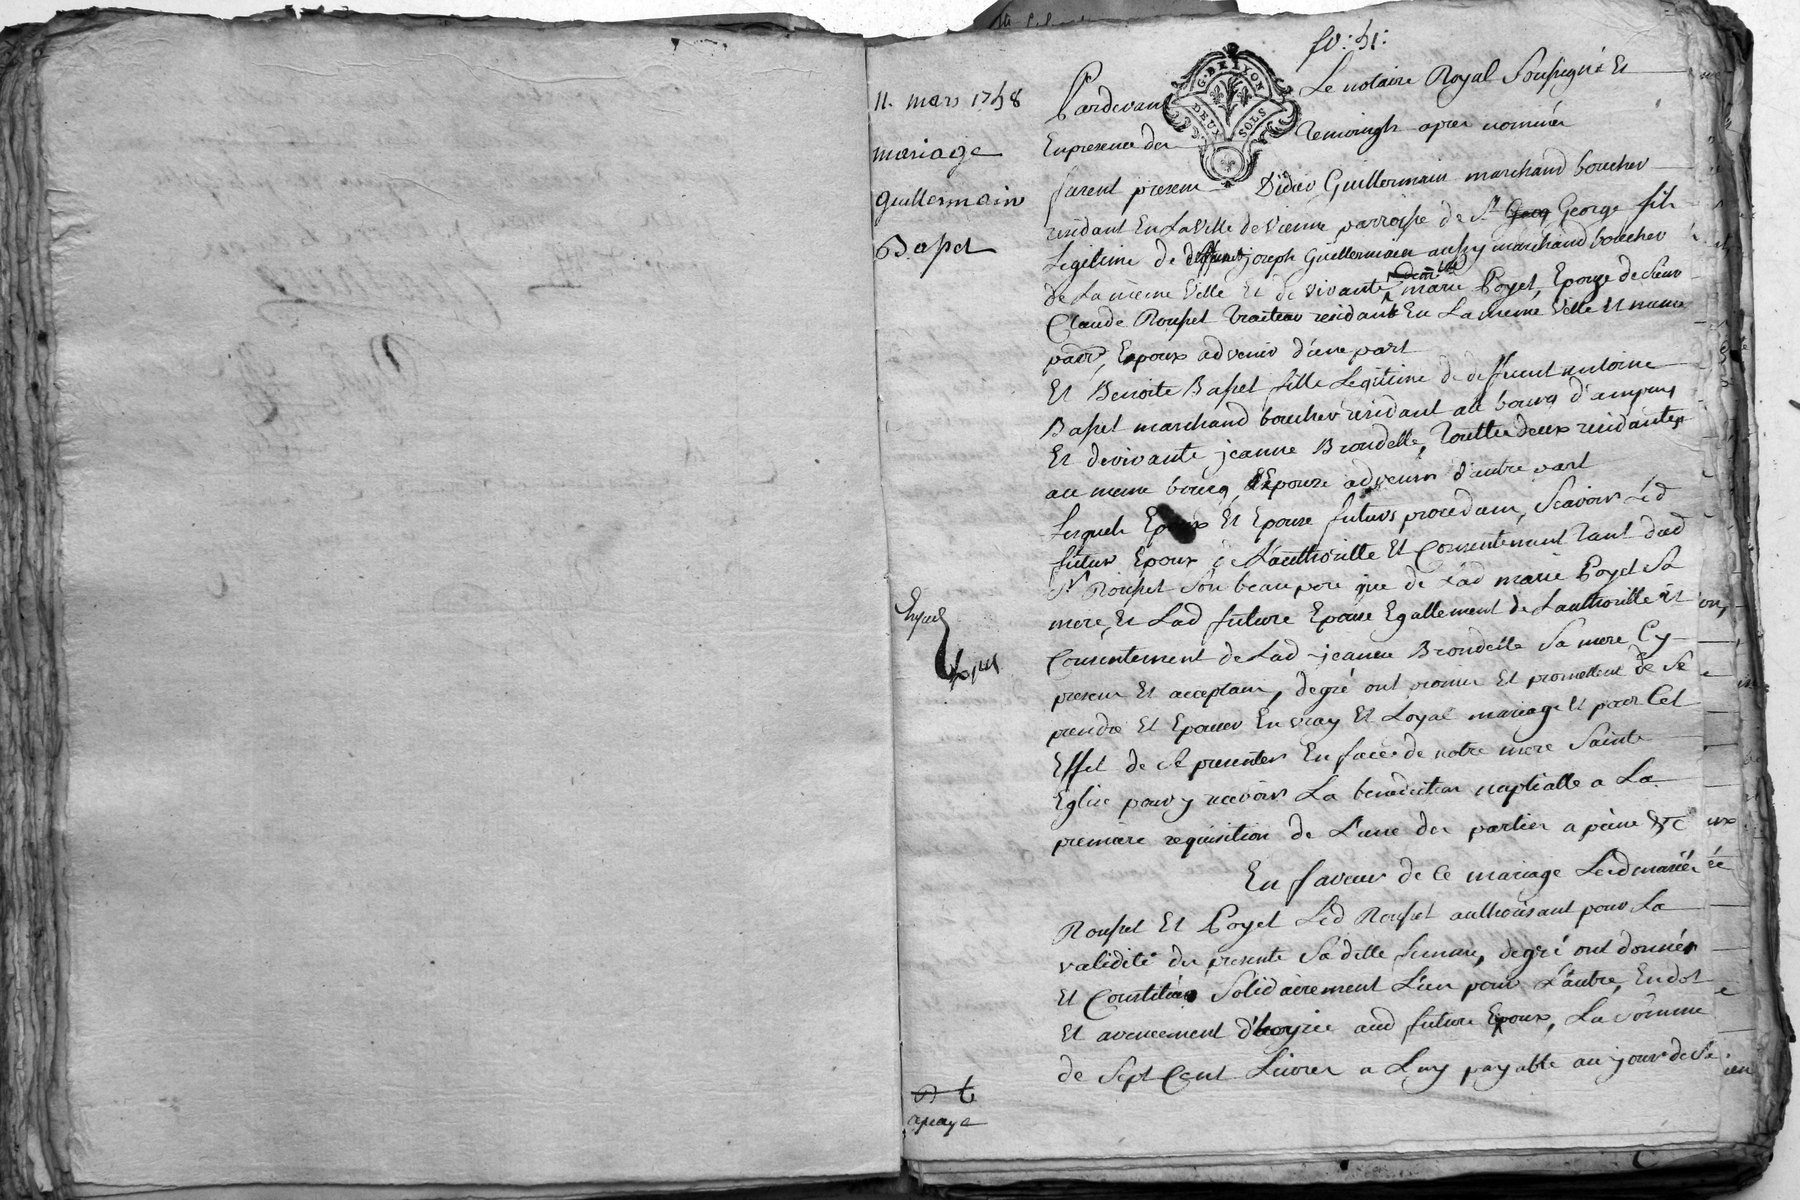 fo: 51:
11. mars 1758
mariage
Guillermain
Basset
G. DE LYON
DEUX SOLS
Pardevant Le notaire Royal Soussigné Et
En presence des Temoingts apres nommés
furent presens Didier Guillermain marchand boucher
residant En La Ville de Vienne parroisse de St George fils
Legitime de deffunt joseph Guillermain aussy marchand boucher
de La meme Ville Et de vivante marie Poyet, Epouze de Sieur
Claude Rousset Traiteur residant En La meme Ville Et meme
parr, Epoux advenir d'une part
Et Benoite Basset fille Legitime de deffunt antoine
Basset marchand boucher residant au bourg d'ampuis
Et de vivante jeanne Brondelle, Toutte deux residantes
au meme bourg, Epouze advenir d'autre part
Lesquels Epoux Et Epouse futurs procedans, Scavoir Led
futur Epoux de L'authorité Et Consentement Tant dud
Sr Rousset Son beau pere que de Lad marie Poyet Sa
mere, Et Lad future Epouse Egallement de L'authorité Et
Consentement de Lad jeanne Brondelle Sa mere Cy
presens Et acceptans, degré ont promis Et promettent de Se
prendre Et Epouser En vray Et Loyal mariage Et pour Cet
Effet de Se presenter En face de notre mere Sainte
Eglise pour y recevoir La benediction nuptialle a La
premiere requisition de L'une des parties a peine &c
En faveur de Ce mariage Lesd mariés
Rousset Et Poyet Led Rousset authorisant pour La
validité des presentes Sa ditte femme, degré ont donnés
Et Constitués Solidairement L'un pour L'autre, En dot
Et avencement d'hoyrie aud futur Epoux, La Somme
de Sept Cent Livres a Luy payable au jour de Sa
a paye